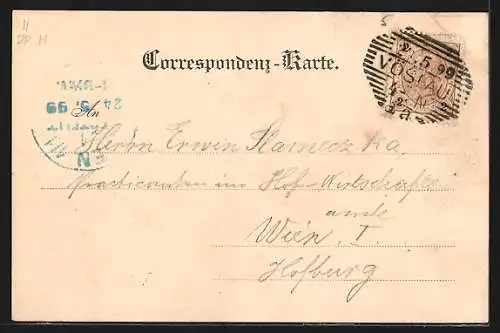 11
Correspondenz-Karte.
5.99
VÖSLAU
An
24
5.99
Herrn Erwin
Practicanten im Hof-Wirtschafts-
amte
Wien, I.
Hofburg